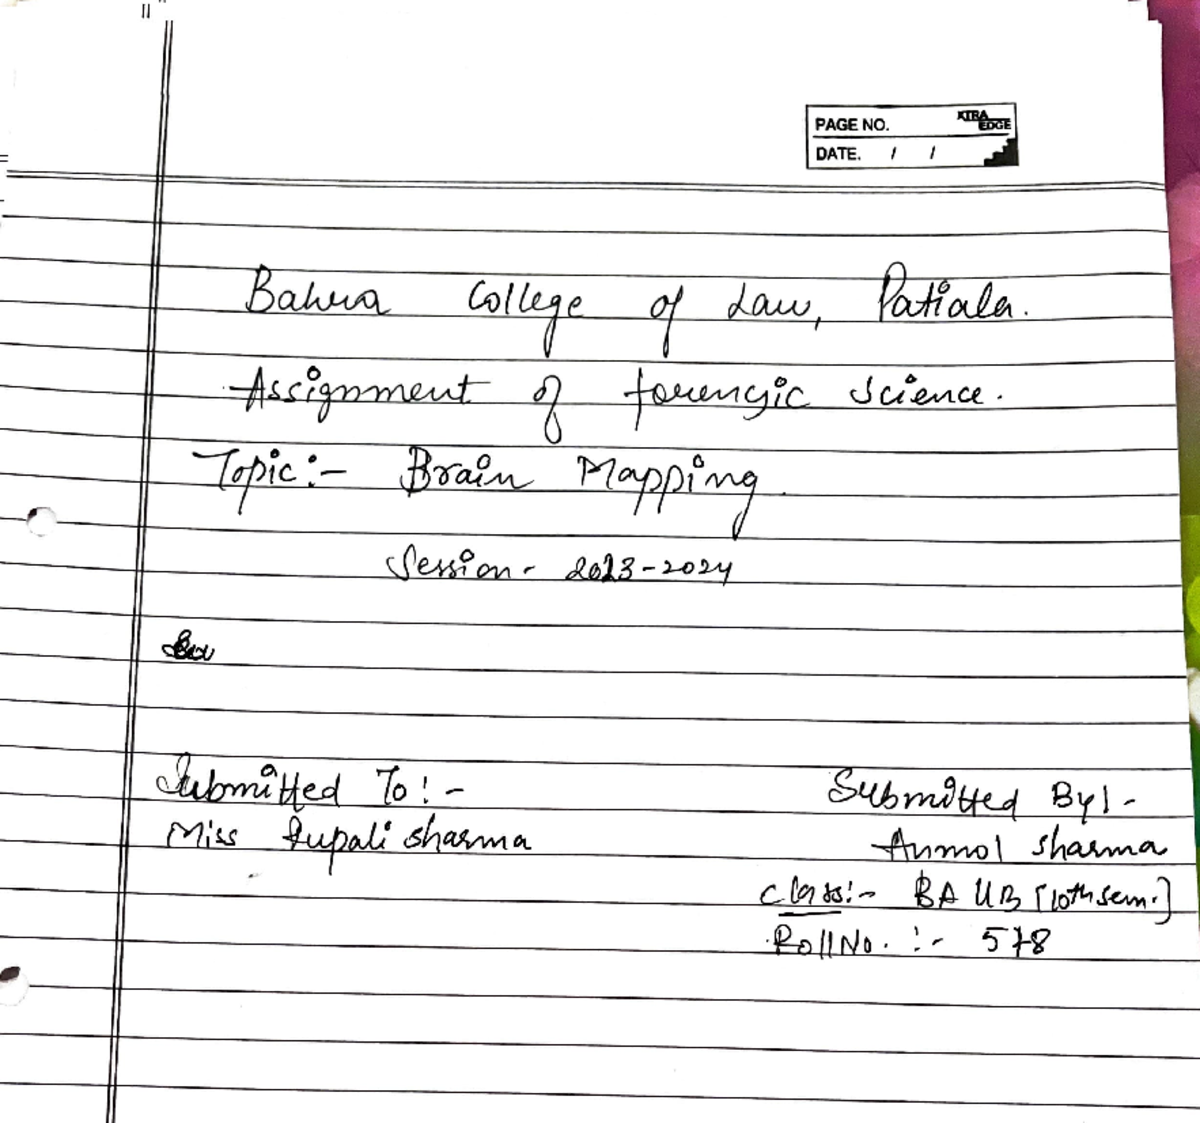 PAGE NO. XTRA EDGE
DATE. / /
Bahra College of Law, Patiala.
Assignment of forensic Science.
Topic:- Brain Mapping.
Session - 2023-2024
Submitted To:-
Submitted By:-
Miss Rupali Sharma
Anmol Sharma
Class:- BA LLB [10th sem.]
Roll No. :- 578